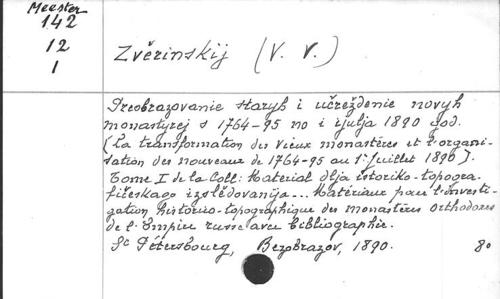 Meester
142
12
1
Zvěrinskij (V. V.)
Preobrazovanie staryh i učreždenie novyh
monastyrej s 1764-95 no i ijulja 1890 god.
(La transformation des vieux monastères et l'organi-
sation des nouveaux de 1764-95 au 1er juillet 1890).
Tome I de la Coll: Material dlja istoriko-topogra-
fičeskago izslědovanija... Matériaux pour l'investi-
gation historico-topographique des monastères orthodoxes
de l'Empire russe avec bibliographie.
St Pétersbourg, Bezobrazov, 1890. 80